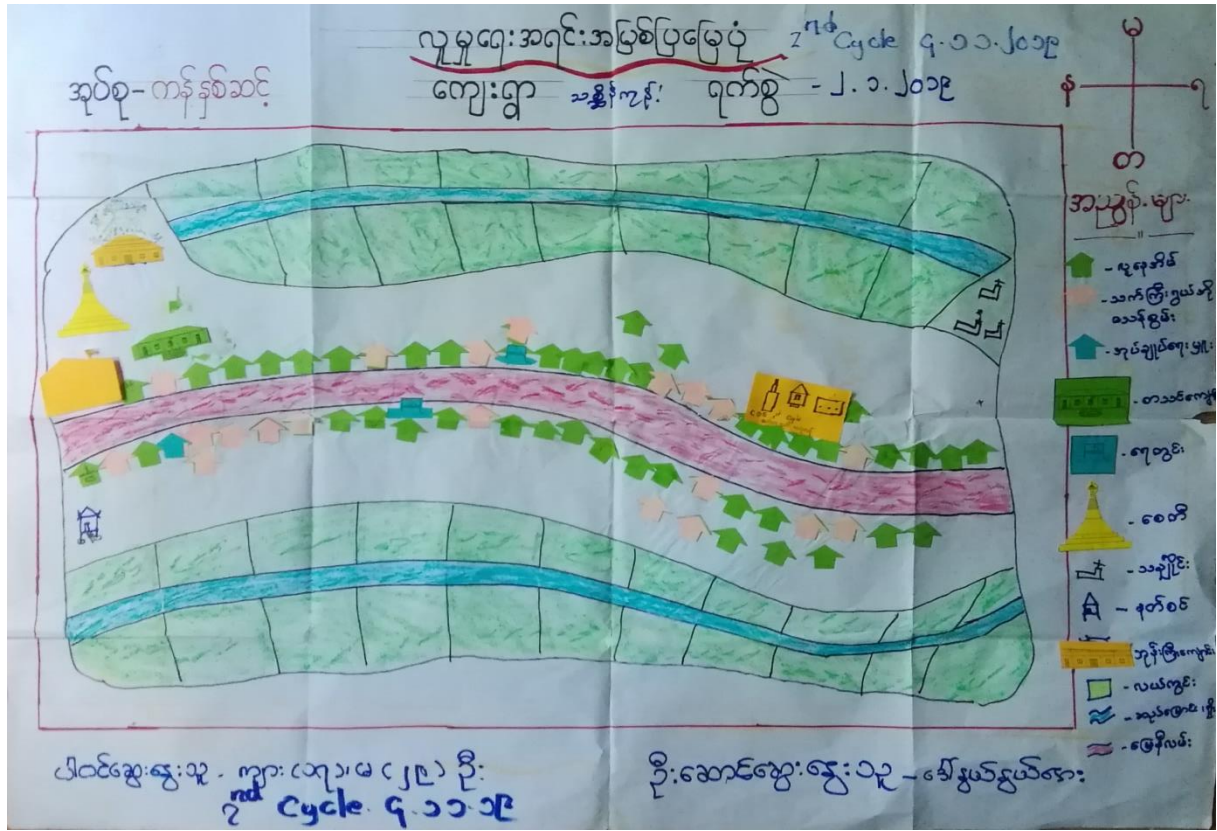 လူမှုရေးအရင်းအမြစ်ပြမြေပုံ 2nd Cycle ၄.၁၁.၂၀၁၉
အုပ်စု - ကန်နှစ်ဆင့်
ကျေးရွာ ရက်စွဲ - ၂.၁.၂၀၁၉
မ
န ရ
တ
အညွှန်းများ
"
- လူနေအိမ်
- သက်ကြီးရွယ်အို
မသန်စွမ်း
- အုပ်ချုပ်ရေးမှူး
- စာသင်ကျောင်း
- ရေတွင်း
- စေတီ
- သချႋုင်း
- နတ်စင်
ဘုန်းကြီးကျောင်း
- လယ်ကွင်း
- မြေနီလမ်း
ပါဝင်ဆွေးနွေးသူ - ကျား (၁၃)၊ မ (၂၉) ဦး
2nd Cycle ၄.၁၁.၁၉
ဦးဆောင်ဆွေးနွေးသူ - ဒေါ်နွယ်နွယ်အေး